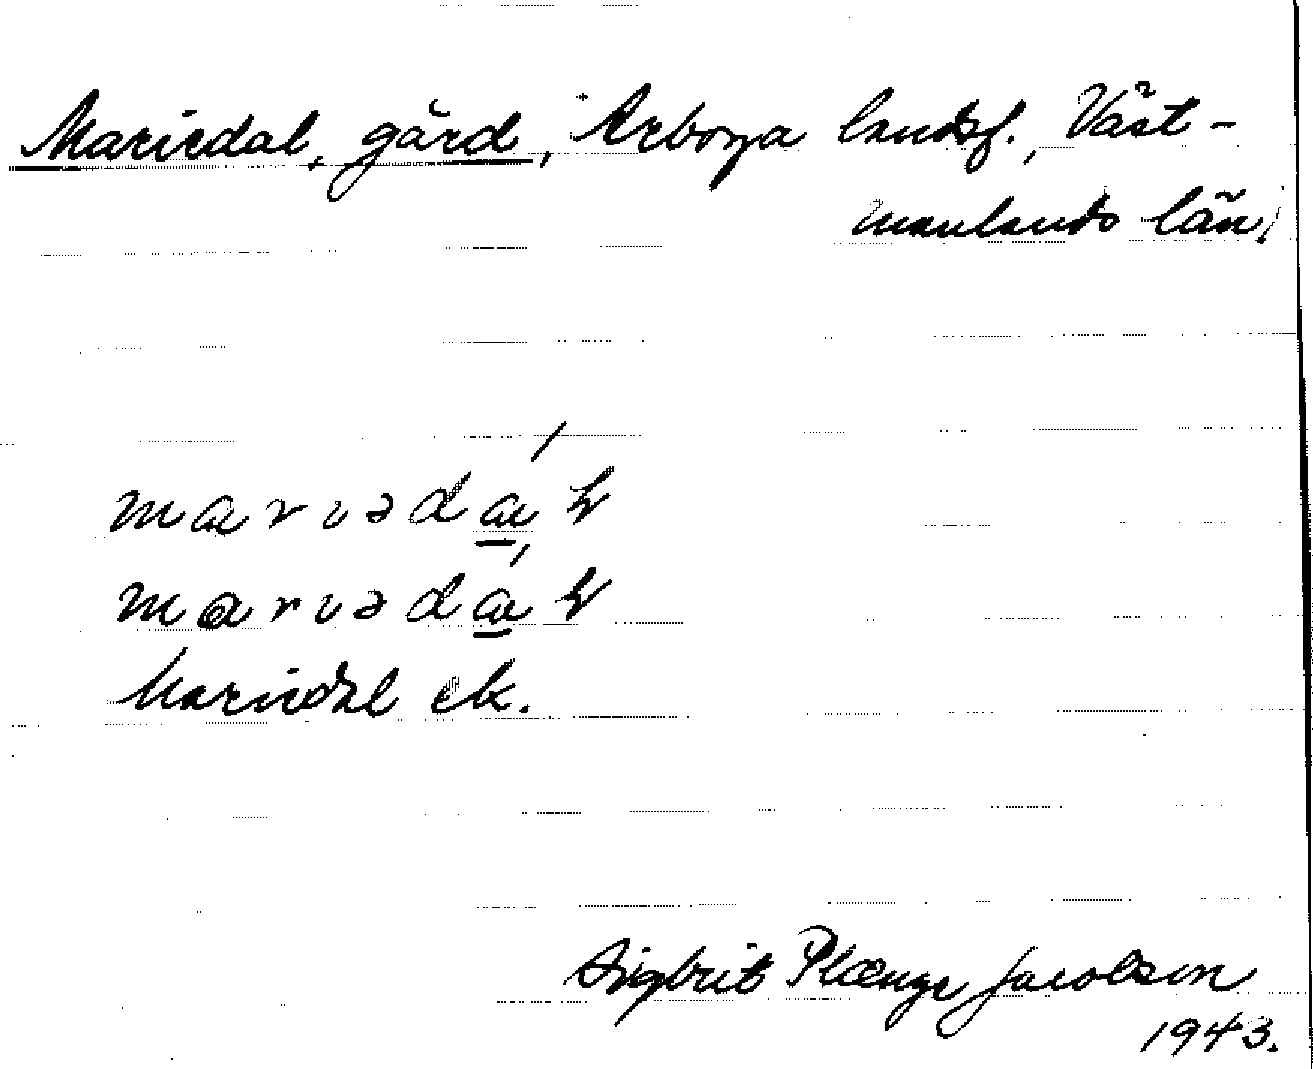 Mariedal, gård, Arboga landsf., Väst-
manlands län.
mariədá̲l
mariədá̲l
Mariedal ek.
Sigbrit Plænge Jacobson
1943.